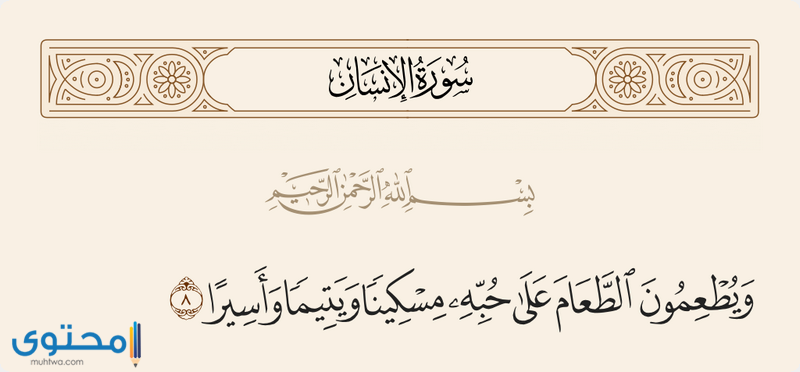 سُورَةُ الإِنسَانِ
بِسْمِ ٱللَّهِ ٱلرَّحْمَٰنِ ٱلرَّحِيمِ
وَيُطْعِمُونَ ٱلطَّعَامَ عَلَىٰ حُبِّهِۦ مِسْكِينًا وَيَتِيمًا وَأَسِيرًا ٨
محتوى
muhtwa.com